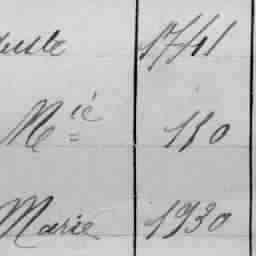 1741
Mie 110
Marie 1930